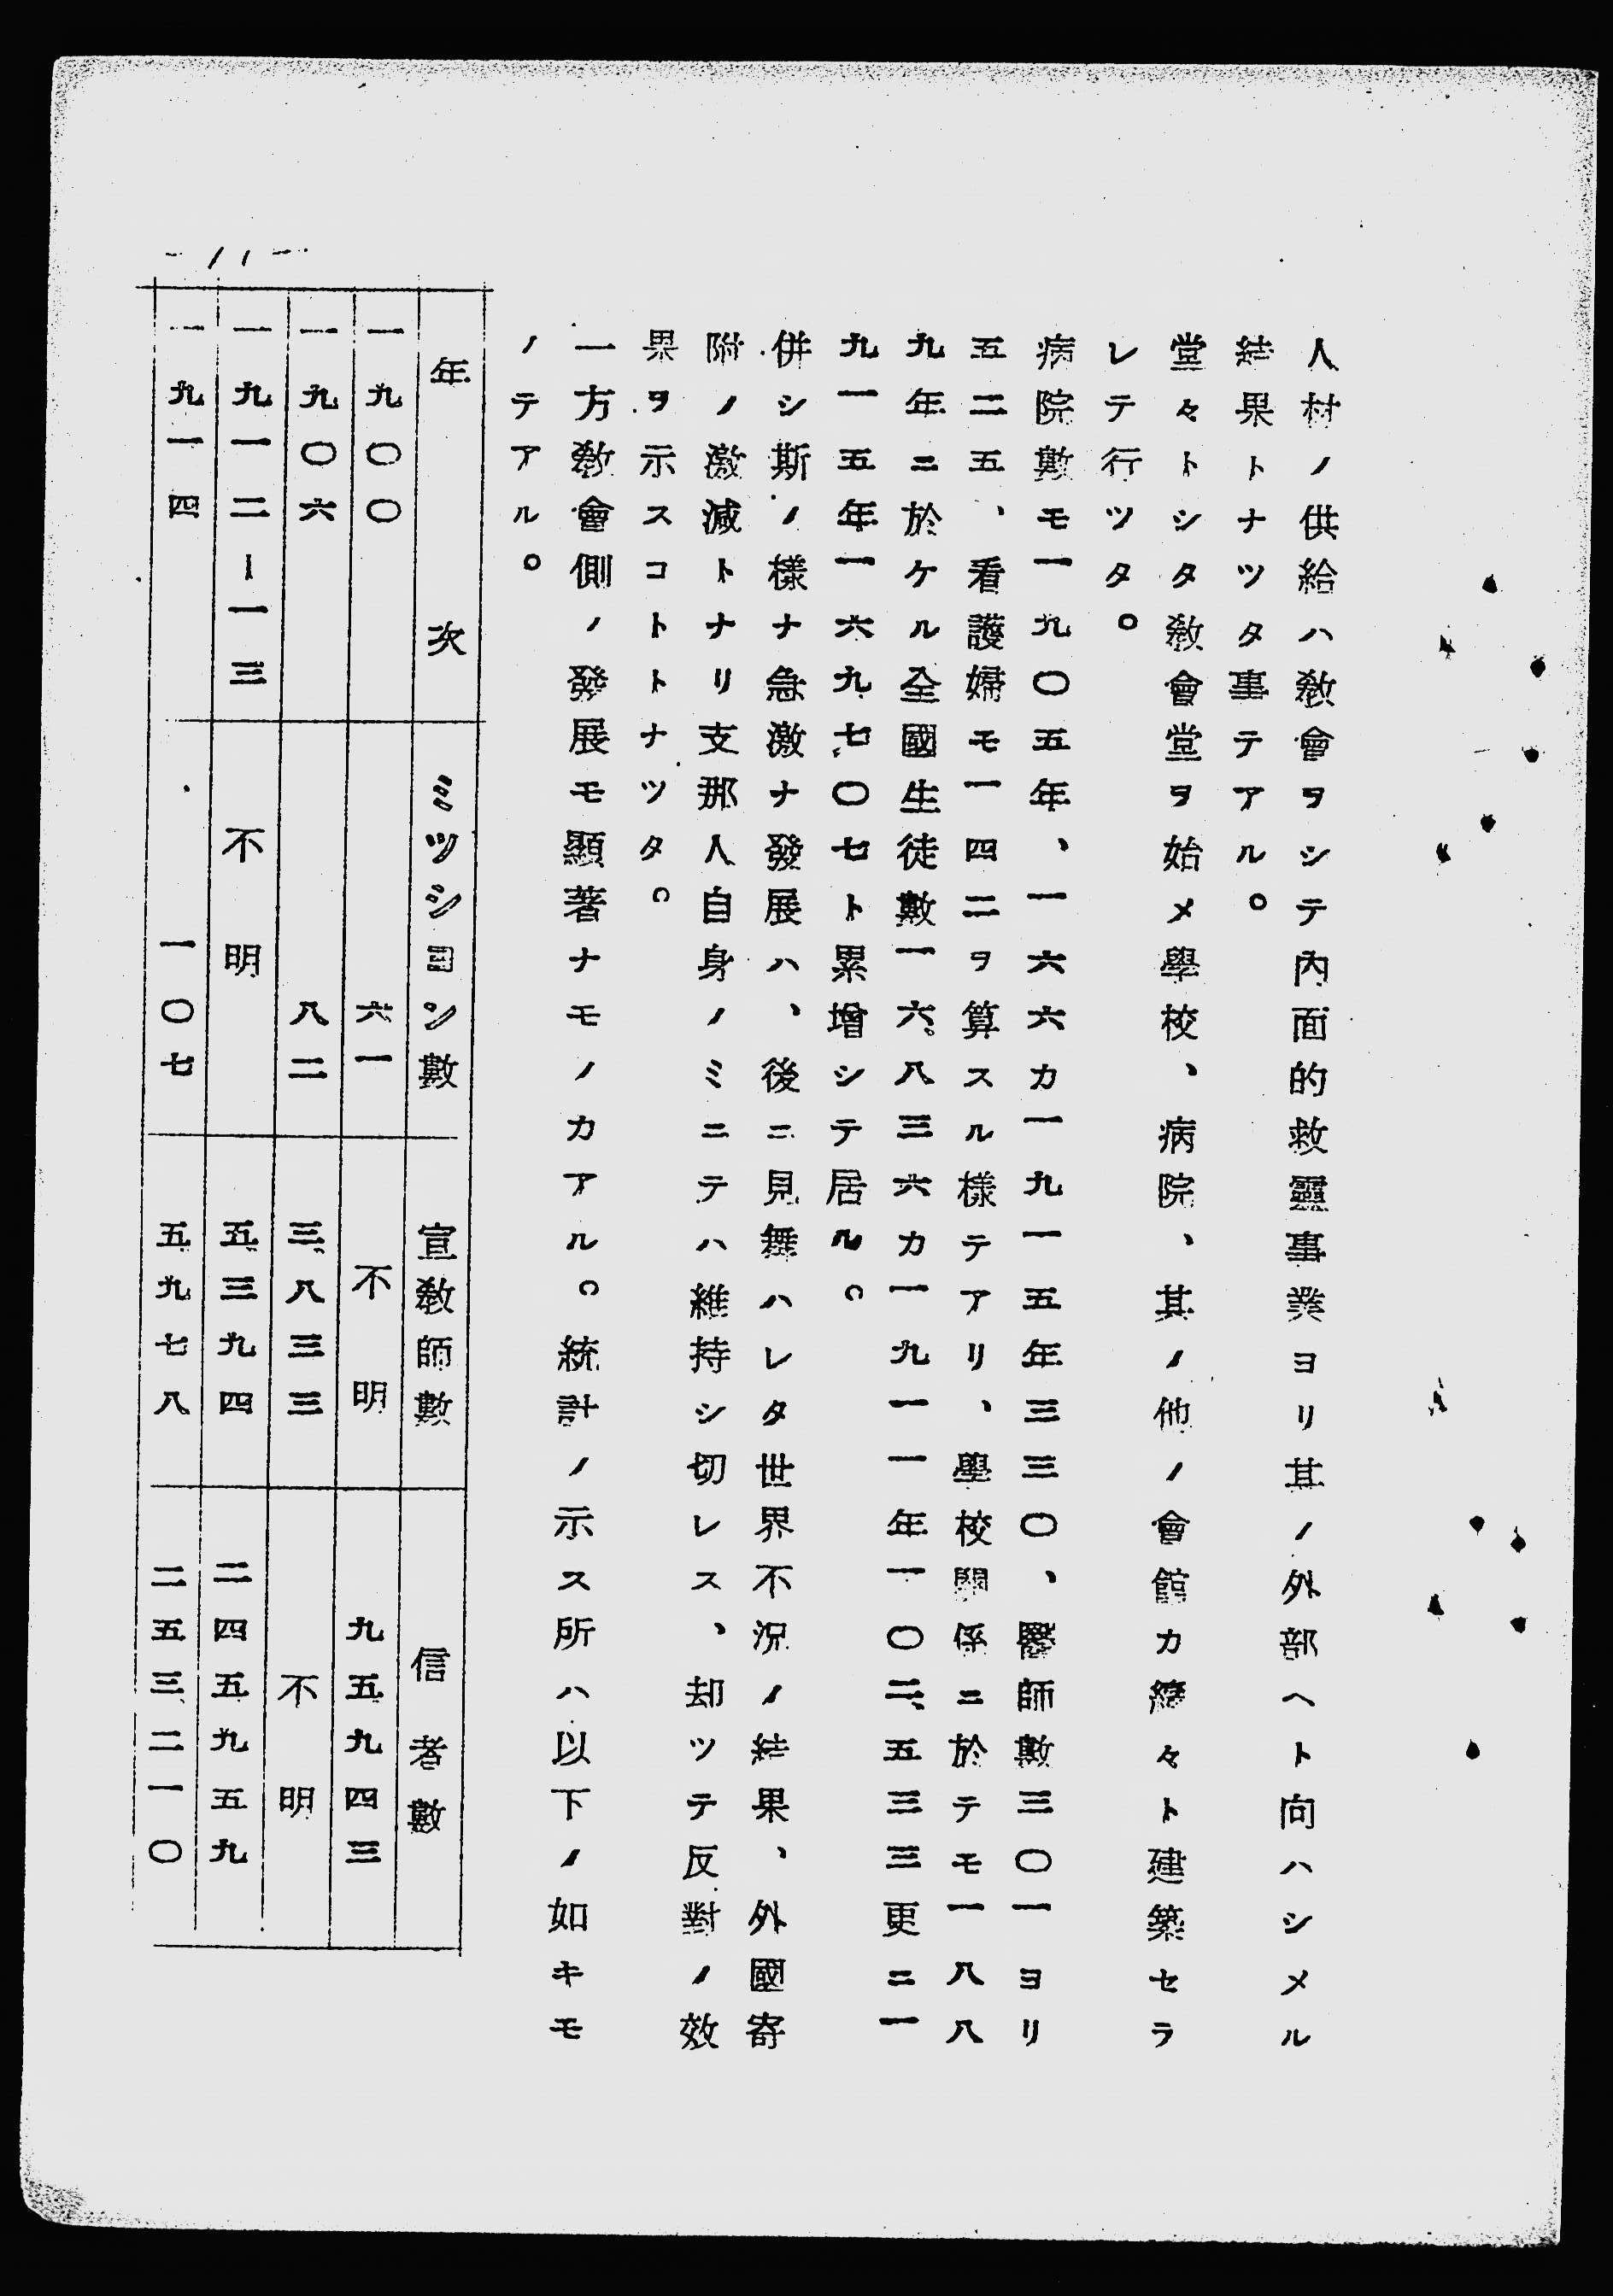 人材ノ供給ハ敎會ヲシテ內面的救靈事業ヨリ其ノ外部ヘト向ハシメル
結果トナツタ事テアル。
堂々トシタ敎會堂ヲ始メ學校、病院、其ノ他ノ會館カ續々ト建築セラ
レテ行ツタ。
病院數モ一九〇五年、一六六カ一九一五年三三〇、醫師數三〇一ヨリ
五二五、看護婦モ一四二ヲ算スル樣テアリ、學校關係ニ於テモ一八八
九年ニ於ケル全國生徒數一六、八三六カ一九一一年一〇二、五三三更ニ一
九一五年一六九、七〇七ト累增シテ居ル。
併シ斯ノ樣ナ急激ナ發展ハ、後ニ見舞ハレタ世界不況ノ結果、外國寄
附ノ激減トナリ支那人自身ノミニテハ維持シ切レス、却ツテ反對ノ效
果ヲ示スコトトナツタ。
一方敎會側ノ發展モ顯著ナモノカアル。統計ノ示ス所ハ以下ノ如キモ
ノテアル。
年次 ミツシヨン數 宣敎師數 信者數
一九〇〇 六一 不明 九五九四三
一九〇六 八二 三、八三三 不明
一九一二ー一三 不明 五、三九四 二四五九五九
一九一四 一〇七 五、九七八 二五三、二一〇
-11-